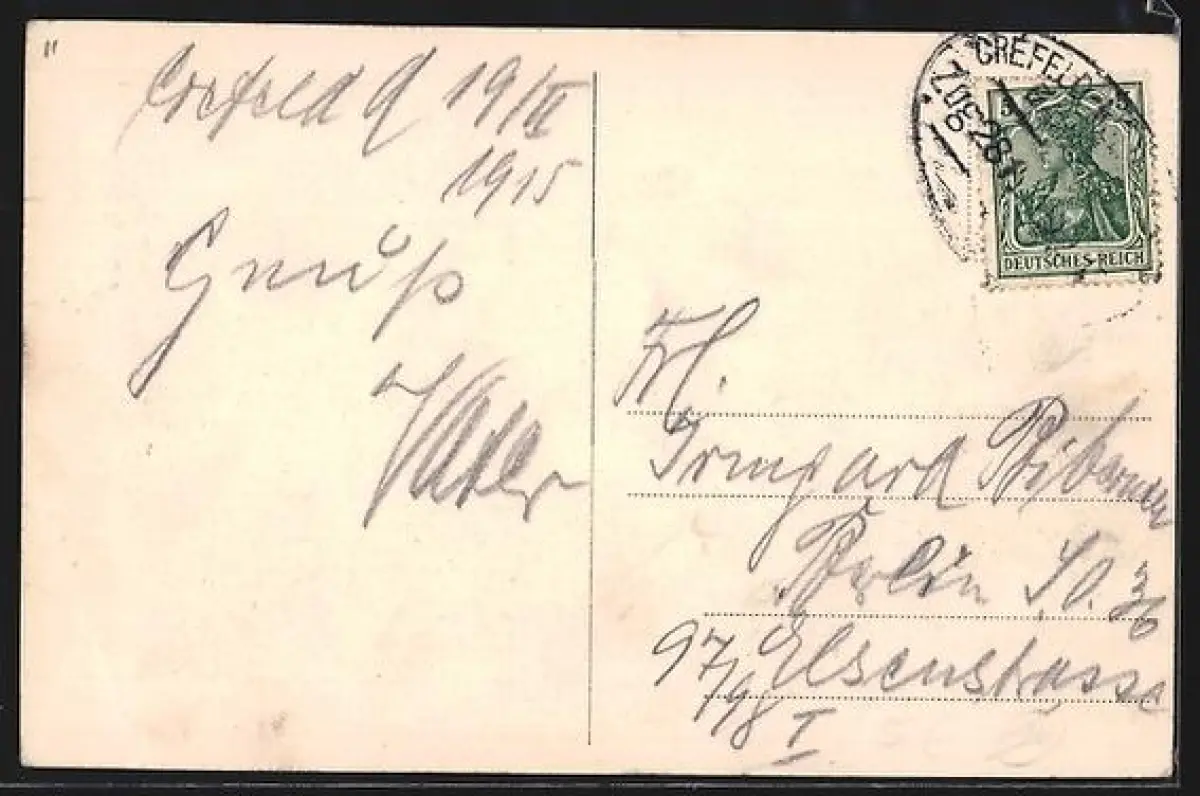 Crefeld d 19/II
1915
Gruß
Vater
CREFELD
ZUG 281
DEUTSCHES REICH
Frl.
Irmgard
Berlin SO. 36
97/98 Elsenstrasse
I